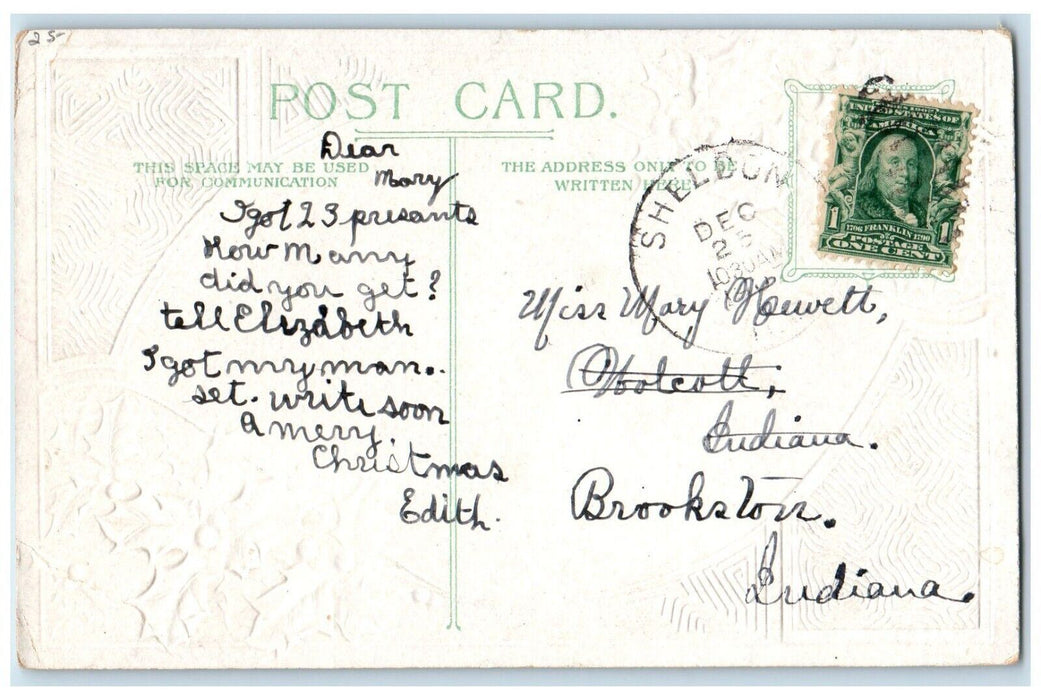 25-
POST CARD.
THIS SPACE MAY BE USED
FOR COMMUNICATION
THE ADDRESS ONLY TO BE
WRITTEN HERE
Dear
Mary
I got 23 presants
How Many
did you get?
tell Elizabeth
I got my man..
set. write soon
A merry.
Christmas
Edith.
SHELDON
DEC
25
1030AM
UNITED STATES OF
AMERICA
1706 FRANKLIN 1790
POSTAGE
1 ONE CENT 1
Miss Mary Hewett,
Wolcott,
Indiana.
Brookston.
Indiana.